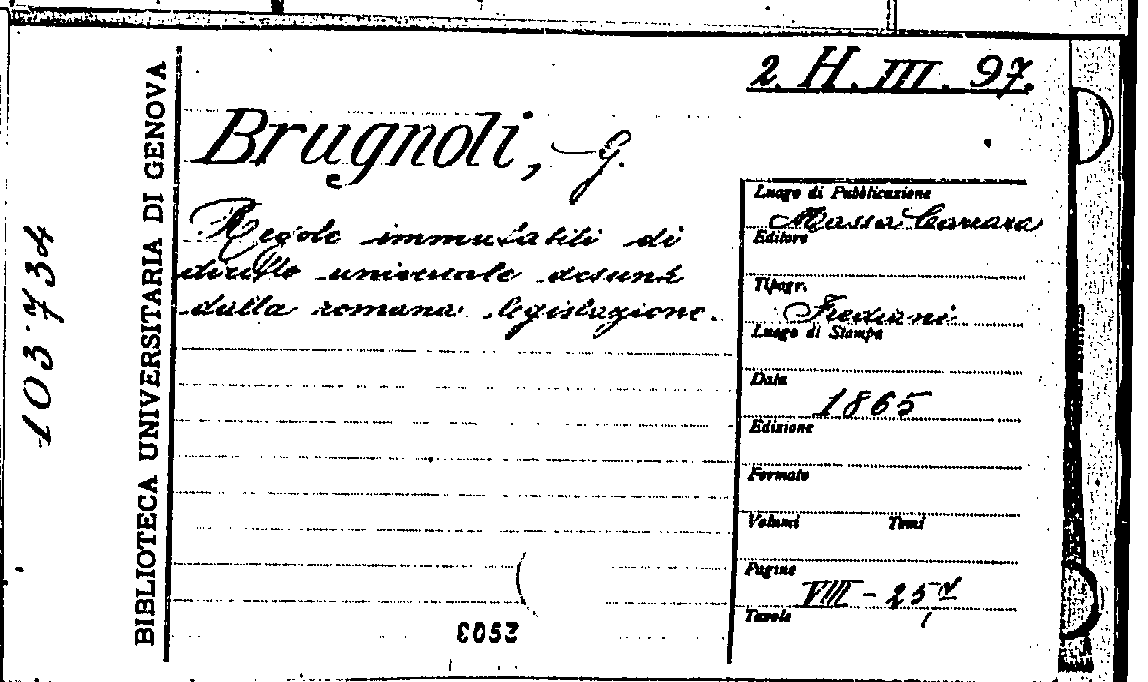 2. H. III. 97.
Brugnoli, G.
Regole immutabili di
diritto universale desunte
dalla romana legislazione.
BIBLIOTECA UNIVERSITARIA DI GENOVA
103734
Luogo di Pubblicazione
Massa Carrara
Editore
Tipogr.
Frediani
Luogo di Stampa
Data
1865
Edizione
Formato
Volumi Tomi
Pagine
VIII - 257
Tavole